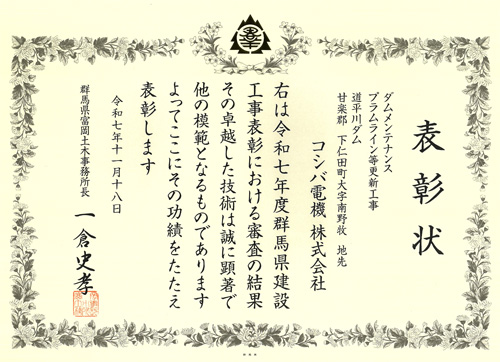 表彰状
ダムメンテナンス
プラムライン等更新工事
道平川ダム
甘楽郡 下仁田町大字南野牧 地先
コシバ電機 株式会社
右は令和七年度群馬県建設
工事表彰における審査の結果
その卓越した技術は誠に顕著で
他の模範となるものであります
よってここにその功績をたたえ
表彰します
令和七年十一月十八日
群馬県富岡土木事務所長 一倉史孝